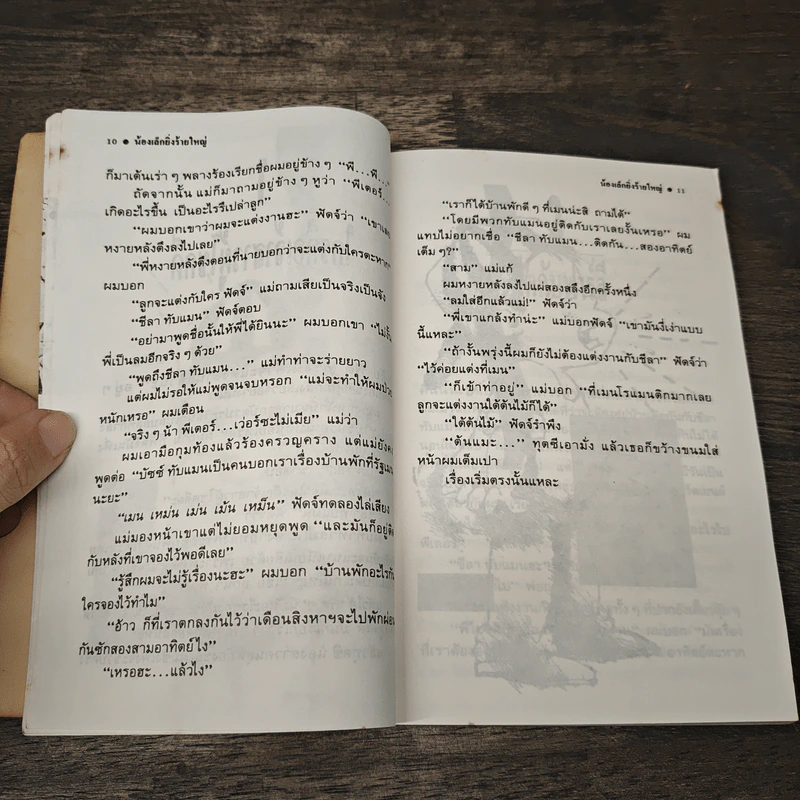 10 ● น้องเล็กยิ่งร้ายใหญ่
ก็มาเต้นเร่า ๆ พลางร้องเรียกชื่อผมอยู่ข้าง ๆ “พี่...พี่...”
ถัดจากนั้น แม่ก็มาถามอยู่ข้าง ๆ หูว่า “พีเตอร์...
เกิดอะไรขึ้น เป็นอะไรรึเปล่าลูก”
“ผมบอกเขาว่าผมจะแต่งงานฮะ” ฟัดจ์ว่า “เขาเลย
หงายหลังตึงลงไปเลย”
“พี่หงายหลังตึงตอนที่นายบอกว่าจะแต่งกับใครตะหาก”
ผมบอก
“ลูกจะแต่งกับใคร ฟัดจ์” แม่ถามเสียเป็นจริงเป็นจัง
“ชีลา ทับแมน” ฟัดจ์ตอบ
“อย่ามาพูดชื่อนั้นให้พี่ได้ยินนะ” ผมบอกเขา “ไม่งั้น
พี่เป็นลมอีกจริง ๆ ด้วย”
“พูดถึงชีลา ทับแมน...” แม่ทำท่าจะร่ายยาว
แต่ผมไม่รอให้แม่พูดจนจบหรอก “แม่จะทำให้ผมป่วย
หนักเหรอ” ผมเตือน
“จริง ๆ น้า พีเตอร์...เว่อร์ซะไม่เมีย” แม่ว่า
ผมเอามือกุมท้องแล้วร้องครวญคราง แต่แม่ยังคง
พูดต่อ “บัซซ์ ทับแมนเป็นคนบอกเราเรื่องบ้านพักที่รัฐเมน
นะยะ”
“เมน เหม่น เม่น เม้น เหม็น” ฟัดจ์ทดลองไล่เสียง
แม่มองหน้าเขาแต่ไม่ยอมหยุดพูด “และมันก็อยู่ติด
กับหลังที่เขาจองไว้พอดีเลย”
“รู้สึกผมจะไม่รู้เรื่องนะฮะ” ผมบอก “บ้านพักอะไรกัน
ใครจองไว้ทำไม”
“อ้าว ก็ที่เราตกลงกันไว้ว่าเดือนสิงหาฯจะไปพักผ่อน
กันซักสองสามอาทิตย์ไง”
“เหรอฮะ...แล้วไง”
น้องเล็กยิ่งร้ายใหญ่ ● 11
“เราก็ได้บ้านพักดี ๆ ที่เมนน่ะสิ ถามได้”
“โดยมีพวกทับแมนอยู่ติดกับเราเลยงั้นเหรอ” ผม
แทบไม่อยากเชื่อ “ชีลา ทับแมน...ติดกัน...สองอาทิตย์
เต็ม ๆ?”
“สาม” แม่แก้
ผมหงายหลังลงไปแผ่สองสลึงอีกครั้งหนึ่ง
“ลมใส่อีกแล้วแม่!” ฟัดจ์ว่า
“พี่เขาแกล้งทำน่ะ” แม่บอกฟัดจ์ “เขามันงี่เง่าแบบ
นี้แหละ”
“ถ้างั้นพรุ่งนี้ผมก็ยังไม่ต้องแต่งงานกับชีลา” ฟัดจ์ว่า
“ไว้ค่อยแต่งที่เมน”
“ก็เข้าท่าอยู่” แม่บอก “ที่เมนโรแมนติกมากเลย
ลูกจะแต่งงานใต้ต้นไม้ก็ได้”
“ใต้ต้นไม้” ฟัดจ์รำพึง
“ต้นแมะ...” ทุตซีเอามั่ง แล้วเธอก็ขว้างขนมใส่
หน้าผมเต็มเปา
เรื่องเริ่มตรงนั้นแหละ